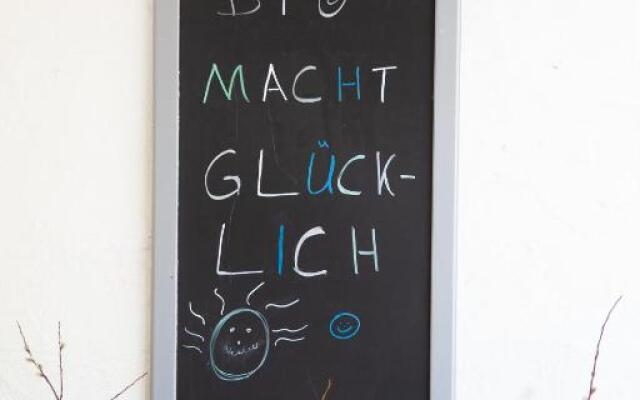 BIO
MACHT
GLÜCK-
LICH